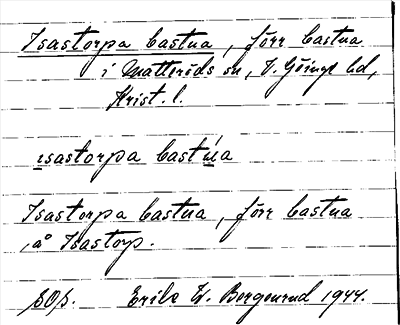 Isastorpa bastua, förr bastua
i Matteröds sn, V. Göinge hd,
Krist. l.
ısastorpa bastúa
Isastorpa bastua, förr bastua
å Isastorp.
Erik W. Bergenrud 1944.